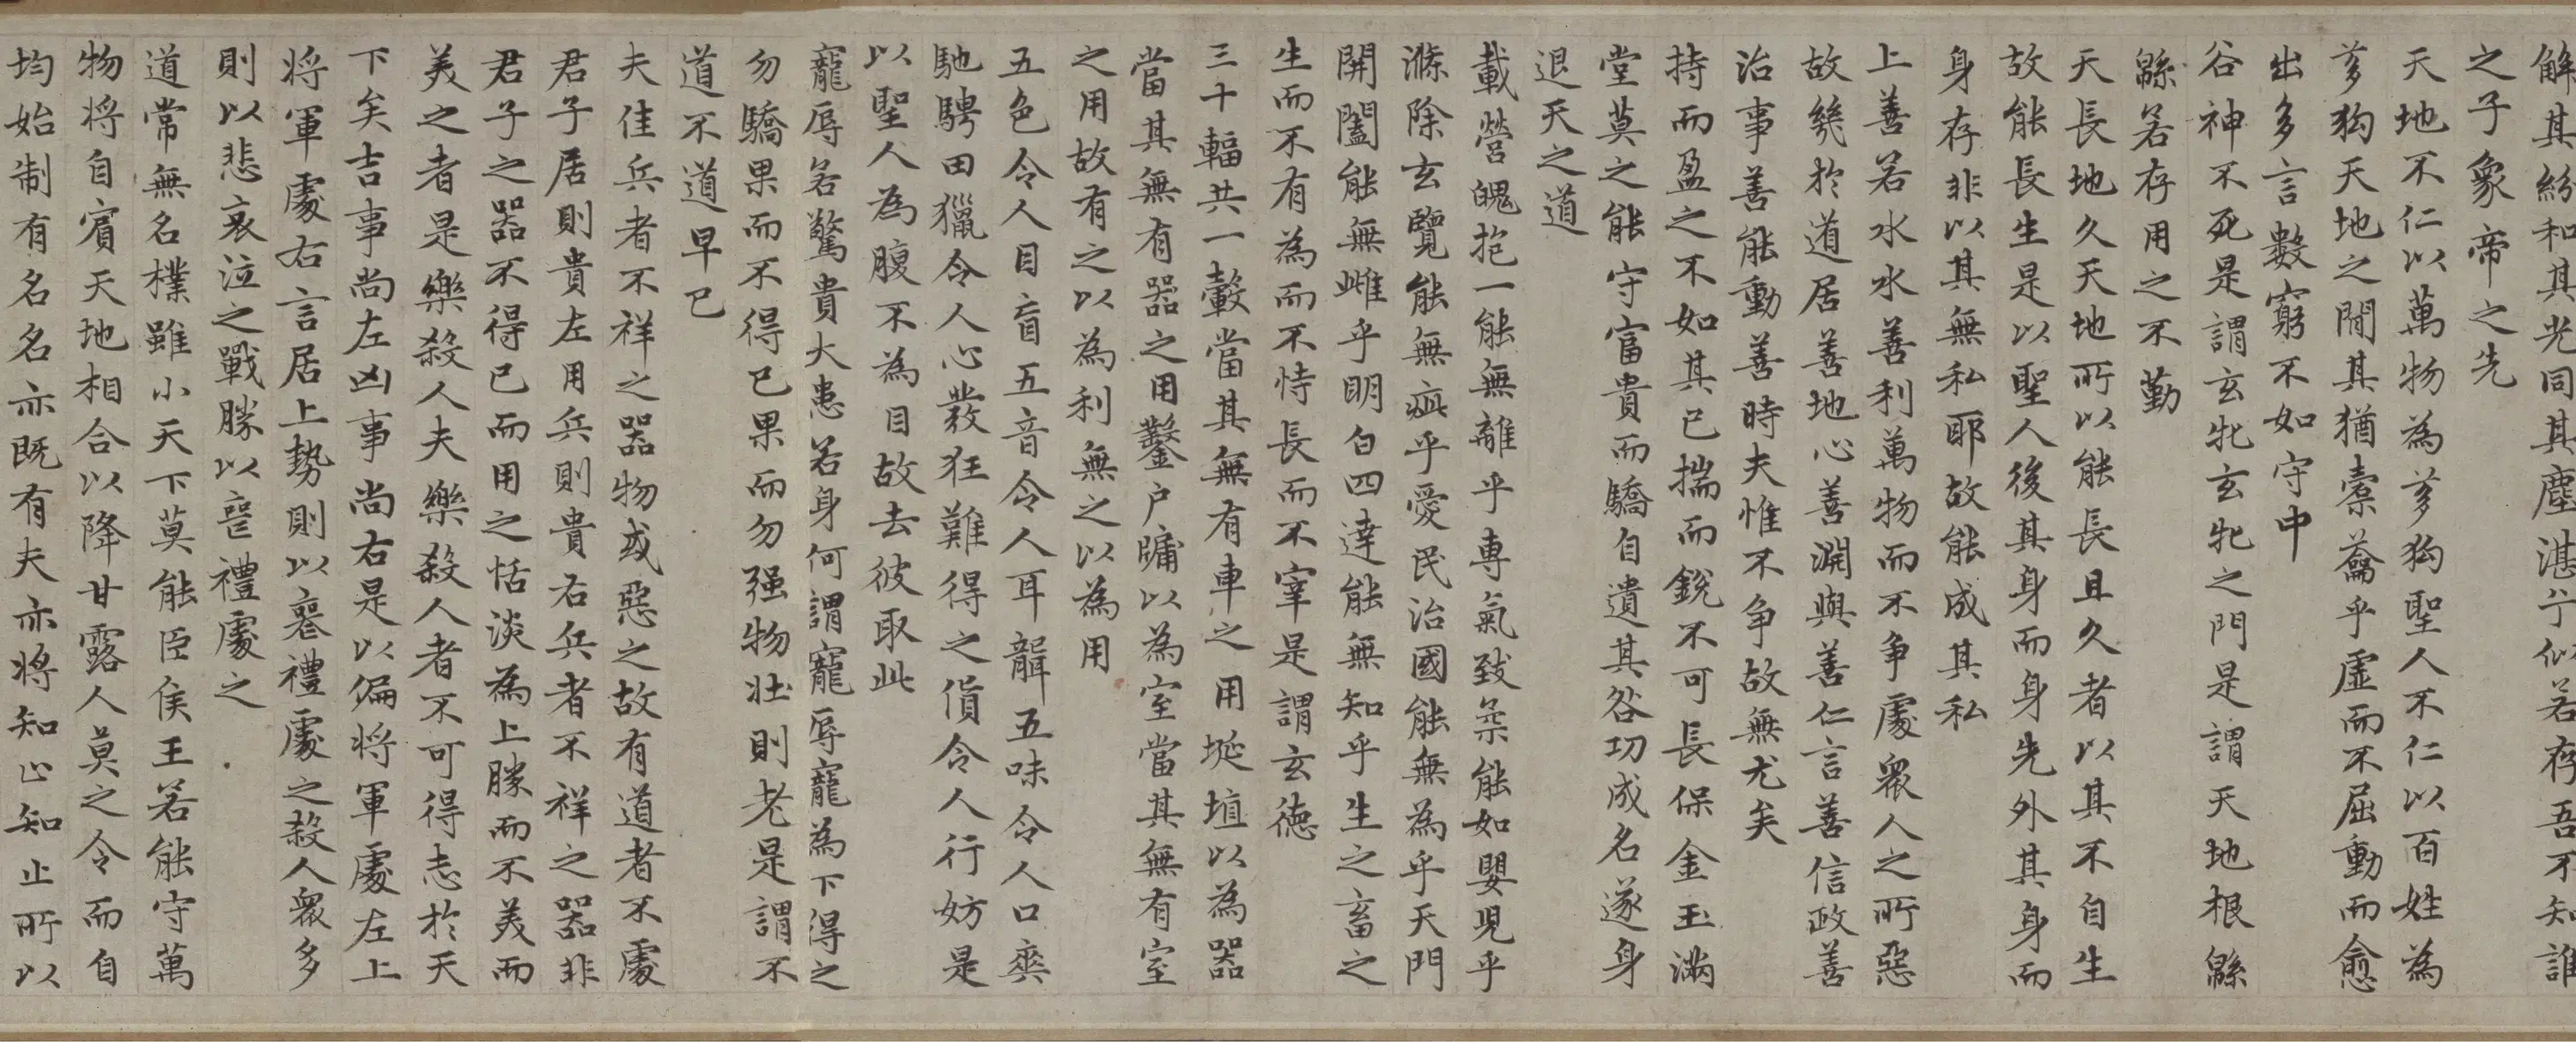 解其紛和其光同其塵湛兮似若存吾不知誰
之子象帝之先
天地不仁以萬物為芻狗聖人不仁以百姓為
芻狗天地之間其猶橐籥乎虛而不屈動而愈
出多言數窮不如守中
谷神不死是謂玄牝玄牝之門是謂天地根緜
緜若存用之不勤
天長地久天地所以能長且久者以其不自生
故能長生是以聖人後其身而身先外其身而
身存非以其無私耶故能成其私
上善若水水善利萬物而不爭處眾人之所惡
故幾於道居善地心善淵與善仁言善信政善
治事善能動善時夫惟不爭故無尤矣
持而盈之不如其已揣而銳不可長保金玉滿
堂莫之能守富貴而驕自遺其咎功成名遂身
退天之道
載營魄抱一能無離乎專氣致柔能如嬰兒乎
滌除玄覽能無疵乎愛民治國能無為乎天門
開闔能無雌乎明白四達能無知乎生之畜之
生而不有為而不恃長而不宰是謂玄德
三十輻共一轂當其無有車之用埏埴以為器
當其無有器之用鑿戶牖以為室當其無有室
之用故有之以為利無之以為用
五色令人目盲五音令人耳聾五味令人口爽
馳騁田獵令人心發狂難得之貨令人行妨是
以聖人為腹不為目故去彼取此
寵辱若驚貴大患若身何謂寵辱寵為下得之
勿驕果而不得已果而勿强物壯則老是謂不
道不道早已
夫佳兵者不祥之器物或惡之故有道者不處
君子居則貴左用兵則貴右兵者不祥之器非
君子之器不得已而用之恬淡為上勝而不美而
美之者是樂殺人夫樂殺人者不可得志於天
下矣吉事尚左凶事尚右是以偏將軍處左上
將軍處右言居上勢則以喪禮處之殺人眾多
則以悲哀泣之戰勝以喪禮處之
道常無名樸雖小天下莫能臣侯王若能守萬
物將自賓天地相合以降甘露人莫之令而自
均始制有名名亦既有夫亦將知止知止所以